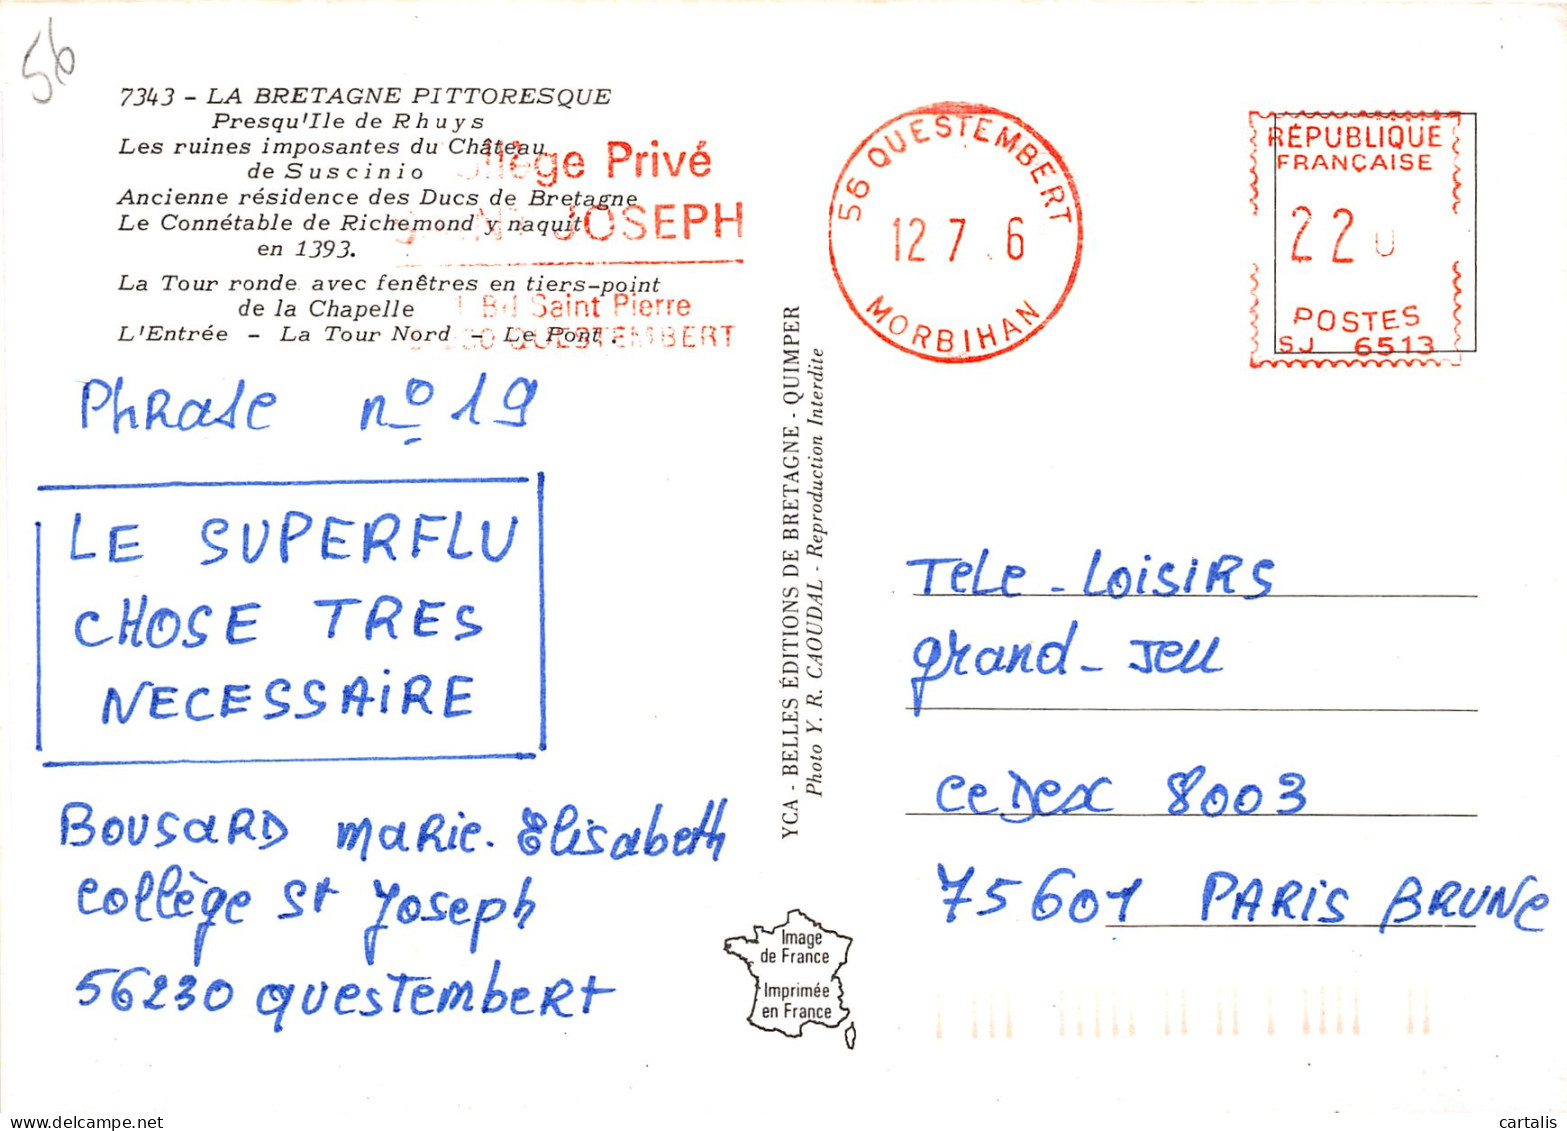 56
7343 - LA BRETAGNE PITTORESQUE
Presqu'Ile de Rhuys
Les ruines imposantes du Château
de Suscinio
Ancienne résidence des Ducs de Bretagne
Le Connétable de Richemond y naquit
en 1393.
La Tour ronde avec fenêtres en tiers-point
de la Chapelle
L'Entrée - La Tour Nord - Le Pont.
Privé
JOSEPH
Bd Saint Pierre
QUESTEMBERT
56 QUESTEMBERT
12 7 6
MORBIHAN
RÉPUBLIQUE
FRANÇAISE
22
POSTES
SJ 6513
Phrase nº 19
LE SUPERFLU
CHOSE TRES
NECESSAIRE
BOUSARD MARie-Elisabeth
Collège St Joseph
56230 questembert
YCA - BELLES ÉDITIONS DE BRETAGNE - QUIMPER
Photo Y. R. CAOUDAL - Reproduction Interdite
TeLe-LoisiRs
grand-Jeu
CeDex 8003
75601 PARIS BRUNE
Image
de France
Imprimée
en France
delcampe.net
cartalis